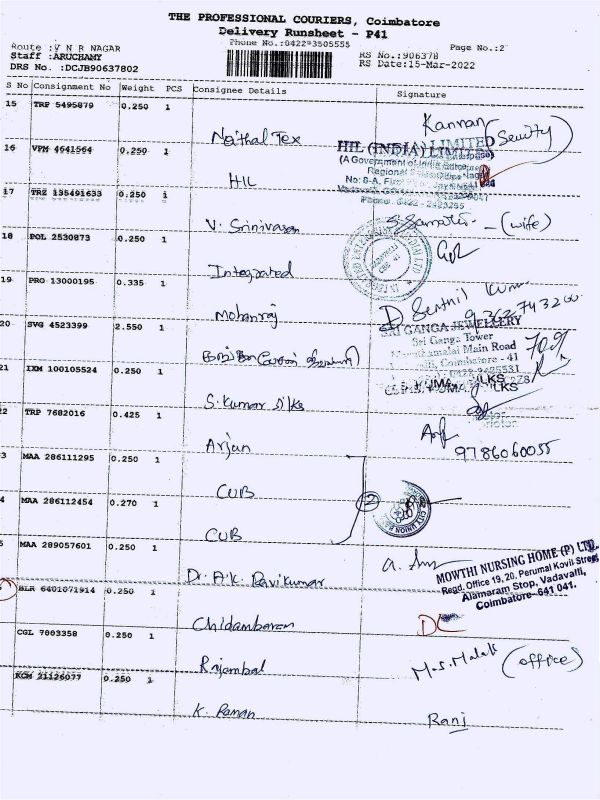 THE PROFESSIONAL COURIERS, Coimbatore
Delivery Runsheet - P41
Phone No.:0422-3505555
Page No.:2
Route :V N R NAGAR
Staff :ARUCHAMY
DRS No. :DCJB90637802
RS No.:906378
RS Date:15-Mar-2022
S No Consignment No Weight PCS Consignee Details Signature
15 TRP 5495879 0.250 1 Neithal Tex Kannan (Security)
16 VPM 4641564 0.250 1 HIL
HIL (INDIA) LIMITED
(A Government of India
Regional
No: 8-A,
17 TRZ 135491633 0.250 1 V. Srinivasan (wife)
18 POL 2530873 0.250 1 Integrated
19 PRO 13000195 0.335 1 Mohanraj Senthil Kumar
20 SVG 4523399 2.550 1
SRI GANGA JEWELLERY
Sri Ganga Tower
Main Road
Coimbatore - 41
21 IXM 100105524 0.250 1 S. Kumar Silks
2 TRP 7682016 0.425 1 Arjun
9786060055
3 MAA 286111295 0.250 1 CUB
2
4 MAA 286112454 0.270 1 CUB
5 MAA 289057601 0.250 1 Dr. A.K. Ravikumar
MOWTHI NURSING HOME (P) LTD.
Regd. Office 19, 20, Perumal Kovil Street,
Alamaram Stop, Vadavalli,
Coimbatore-641 041.
BLR 6401071914 0.250 1 Chidambaram DC
CGL 7003358 0.250 1 Rajambal (office)
KCM 21126077 0.250 1 K. Raman Ranj